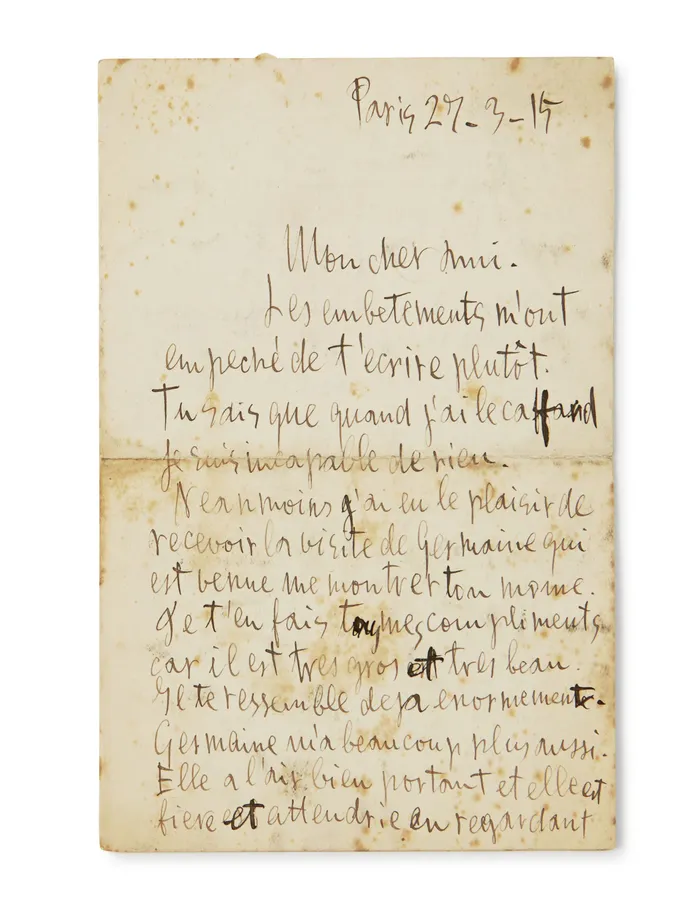 Paris 27-3-15
Mon cher ami.
Les embetements m'ont
empeché de t'ecrire plutôt.
Tu sais que quand j'ai le caffard
je suis incapable de rien.
Neanmoins j'ai eu le plaisir de
recevoir la visite de Germaine qui
est venue me montrer ton mome.
Je t'en fais tous mes compliments
car il est tres gros et tres beau.
Il te ressemble deja enormement.
Germaine m'a beaucoup plus aussi.
Elle a l'air bien portant et elle est
fiere et attendrie en regardant